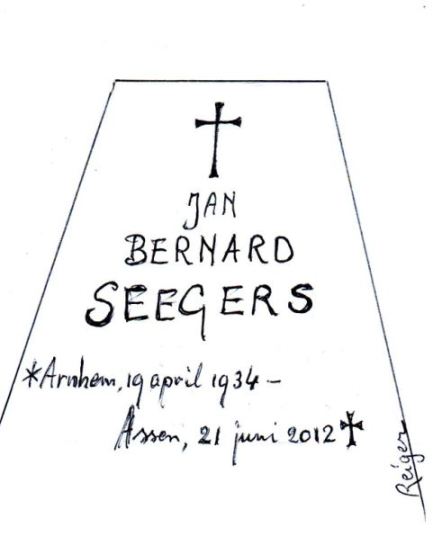 JAN
BERNARD
SEEGERS
*Arnhem, 19 april 1934 –
Assen, 21 juni 2012 ✝
Reiger